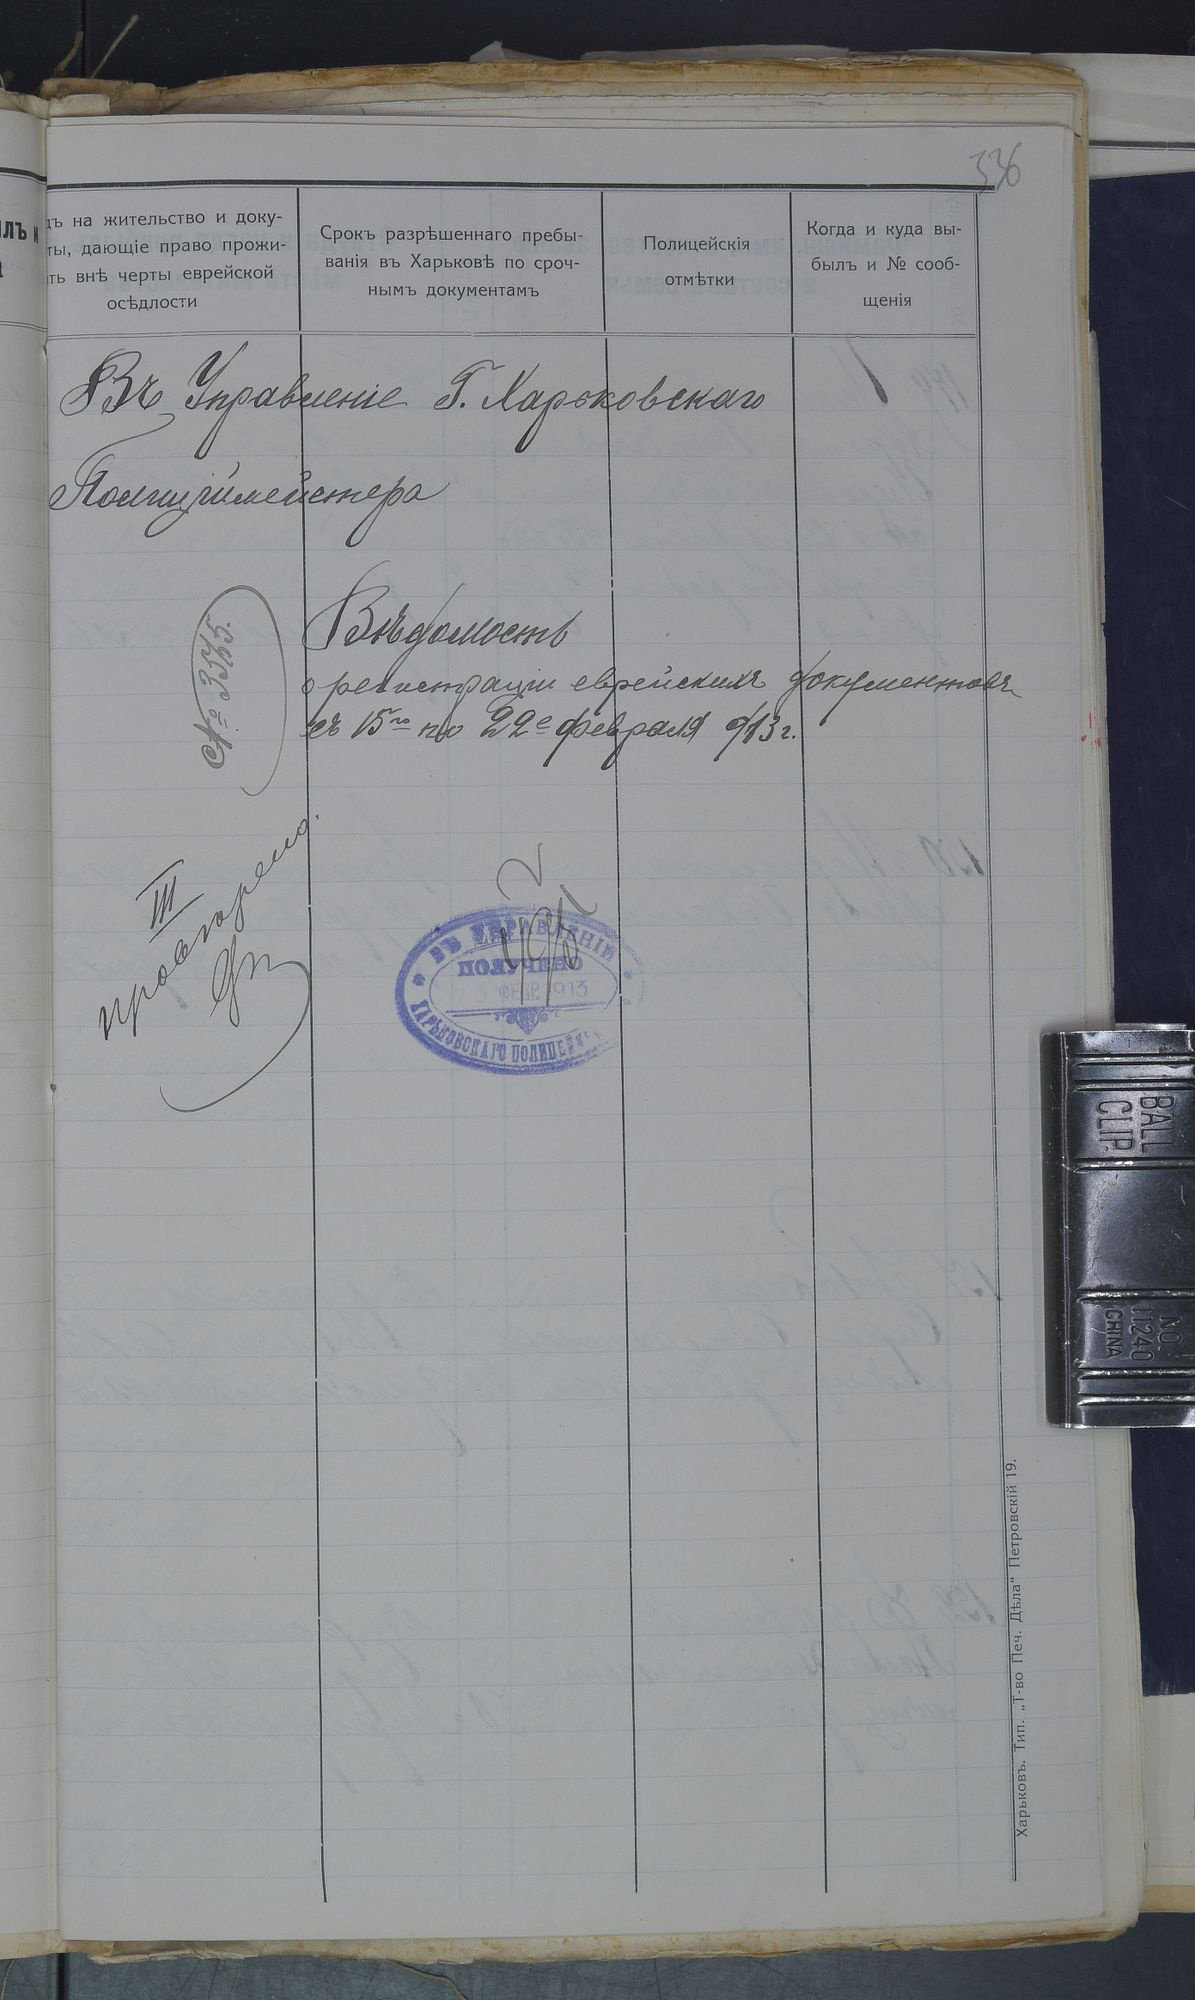 336
дъ на жительство и доку-
ты, дающіе право прожи-
ать внѣ черты еврейской
осѣдлости
Срокъ разрѣшеннаго пребы-
ванія въ Харьковѣ по сроч-
нымъ документамъ
Полицейскія
отмѣтки
Когда и куда вы-
былъ и № сооб-
щенія
Въ Управленіе Г. Харьковскаго
Полицiймейстера
№ 3575.
Вѣдомость
о регистраціи еврейскихъ документовъ
съ 15го по 22е февраля 913 г.
III
проверено.
ВЪ УПРАВЛЕНІИ
ПОЛУЧЕНО
ФЕВР. 1913
ХАРЬКОВСКАГО ПОЛИЦЕЙМ
Харьковъ. Тип. „Т-во Печ. Дѣла“ Петровскій 19.
BALL
CLIP.
NO.
11240
CHINA